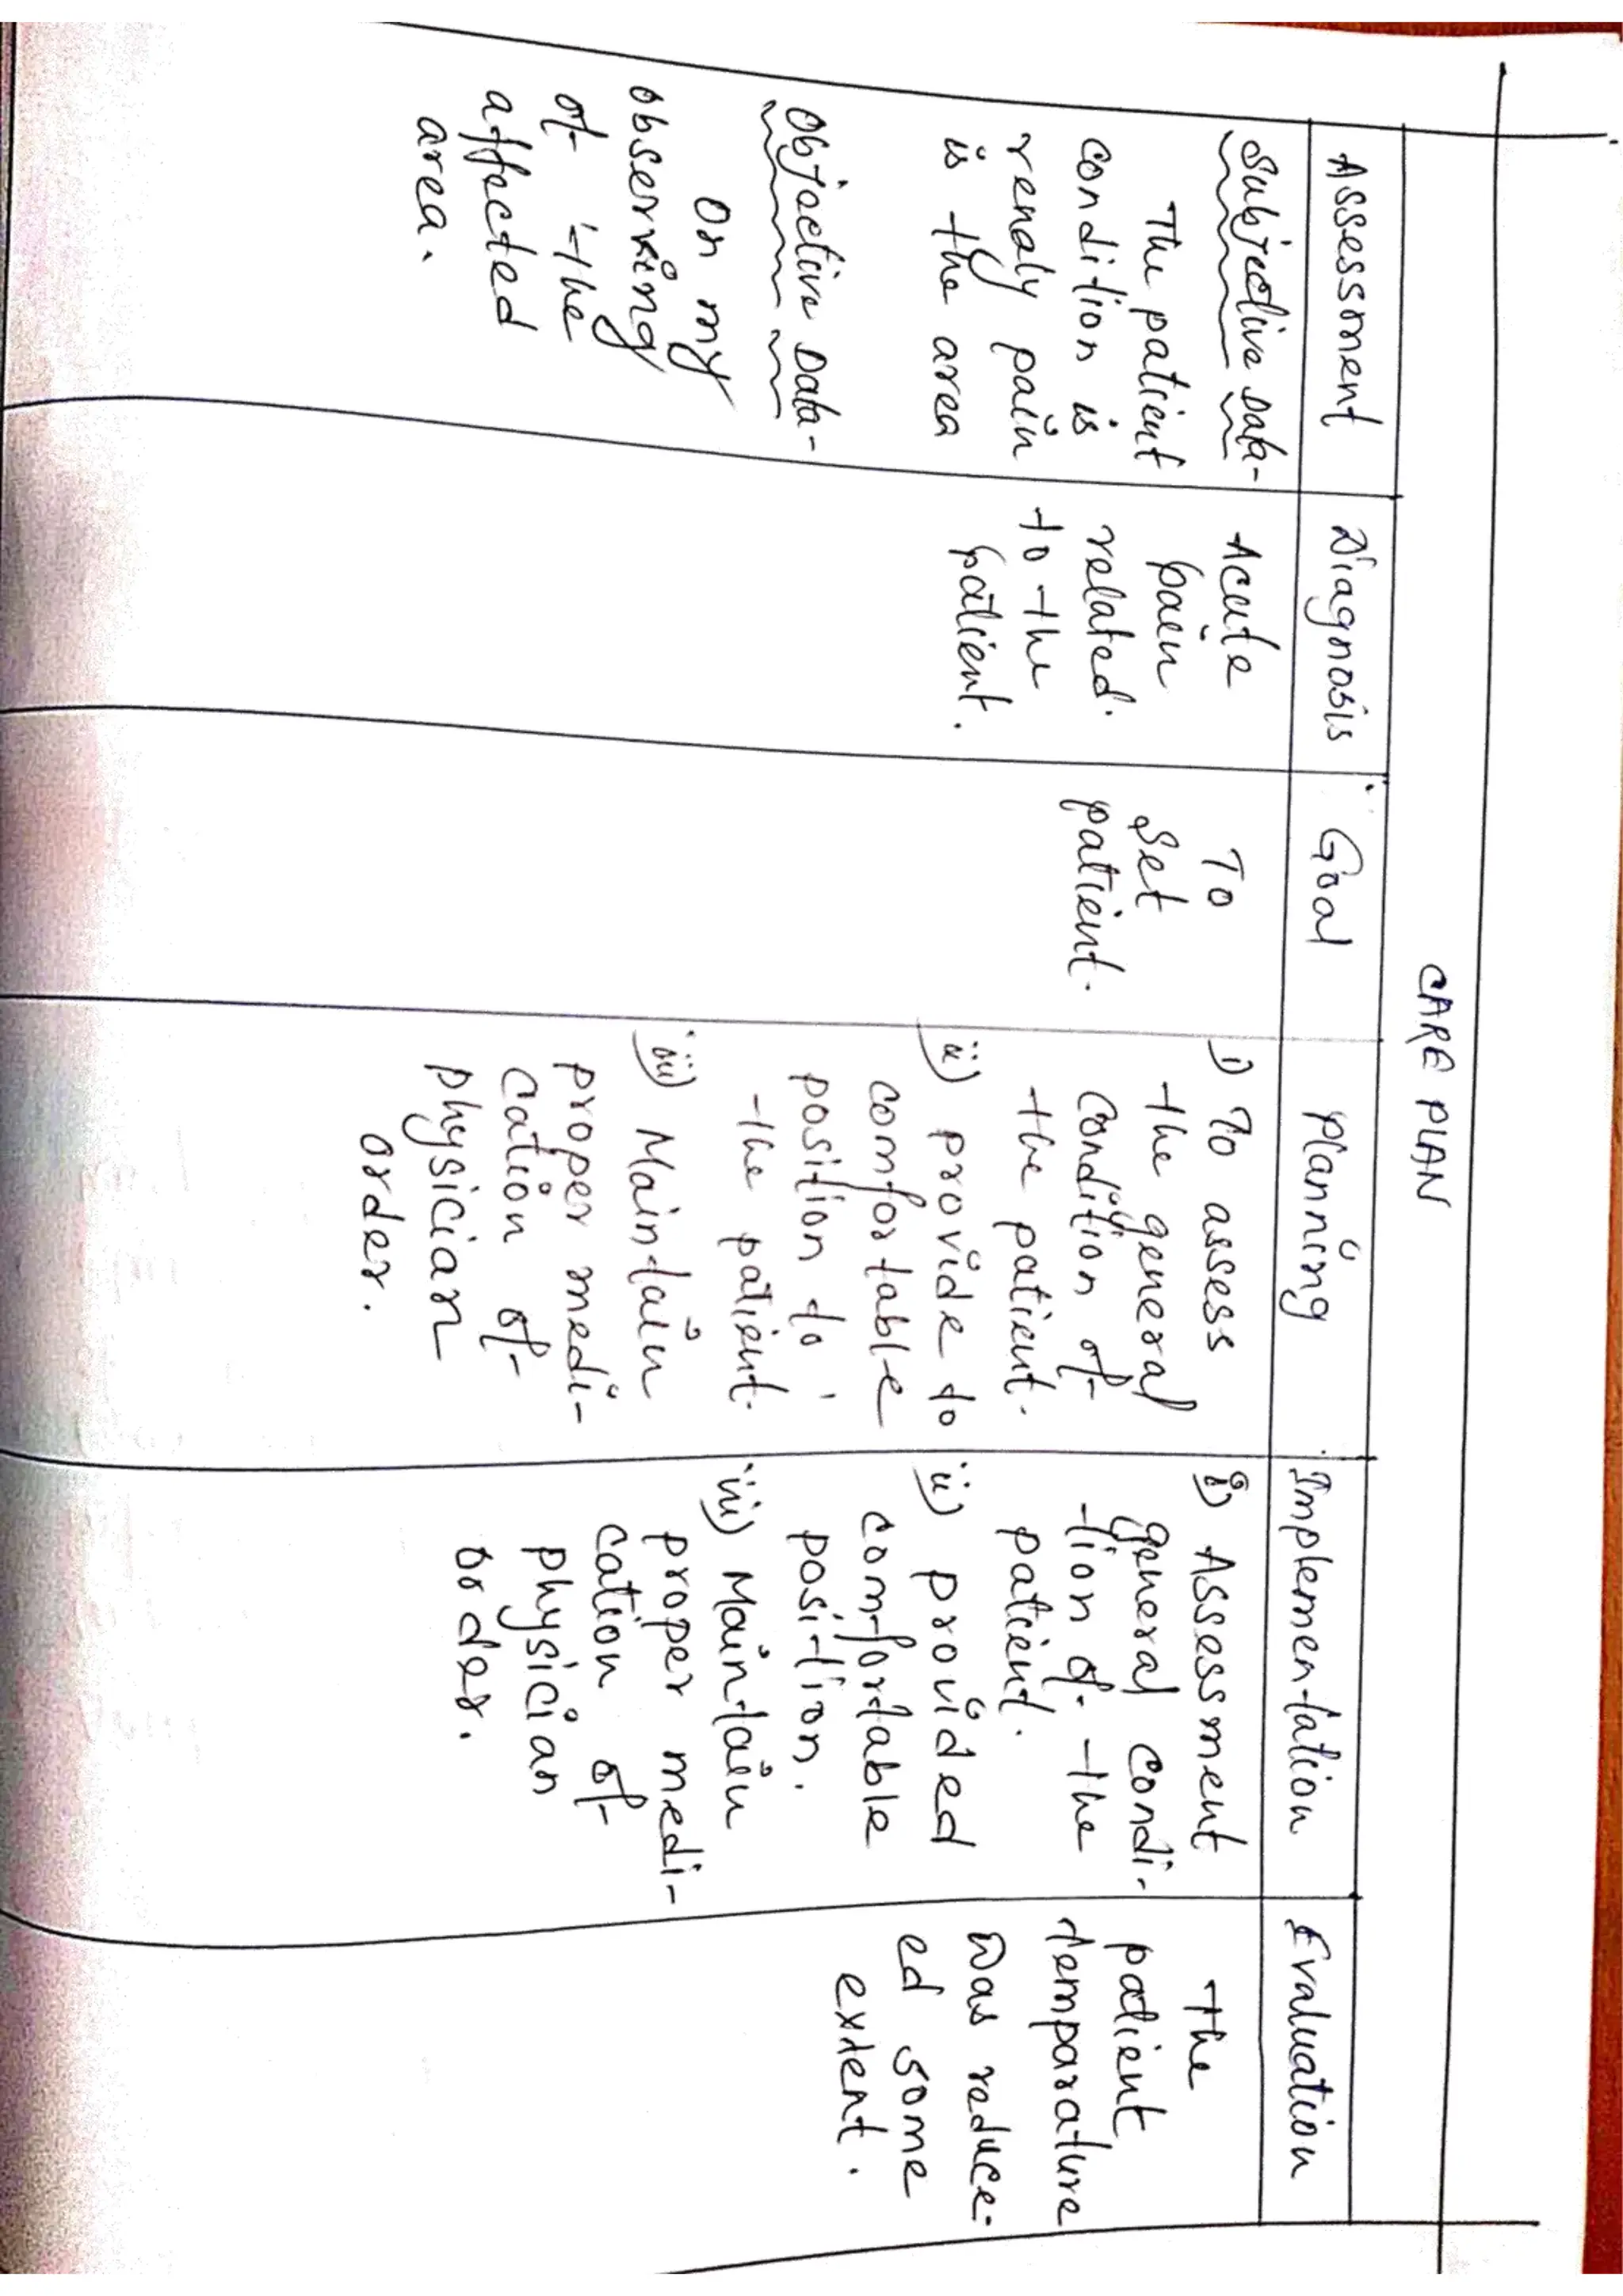 CARE PLAN
Assessment
Subjective Data-
The patient
condition is
renaly pain
is the area
Objective Data-
On my
observing
of the
affected
area.
Diagnosis
Acute
pain
related
to the
patient.
Goal
To
Set
patient.
Planning
i) To assess
the general
condition of
the patient.
ii) provide to
comfortable
position to
the patient.
iii) Maintain
proper medi-
cation of
physician
order.
Implementation
i) Assessment
general condi-
tion of the
patient.
ii) provided
comfortable
position.
iii) Maintain
proper medi-
cation of
physician
order.
Evaluation
The
patient
temparature
was reduce-
ed some
extent.